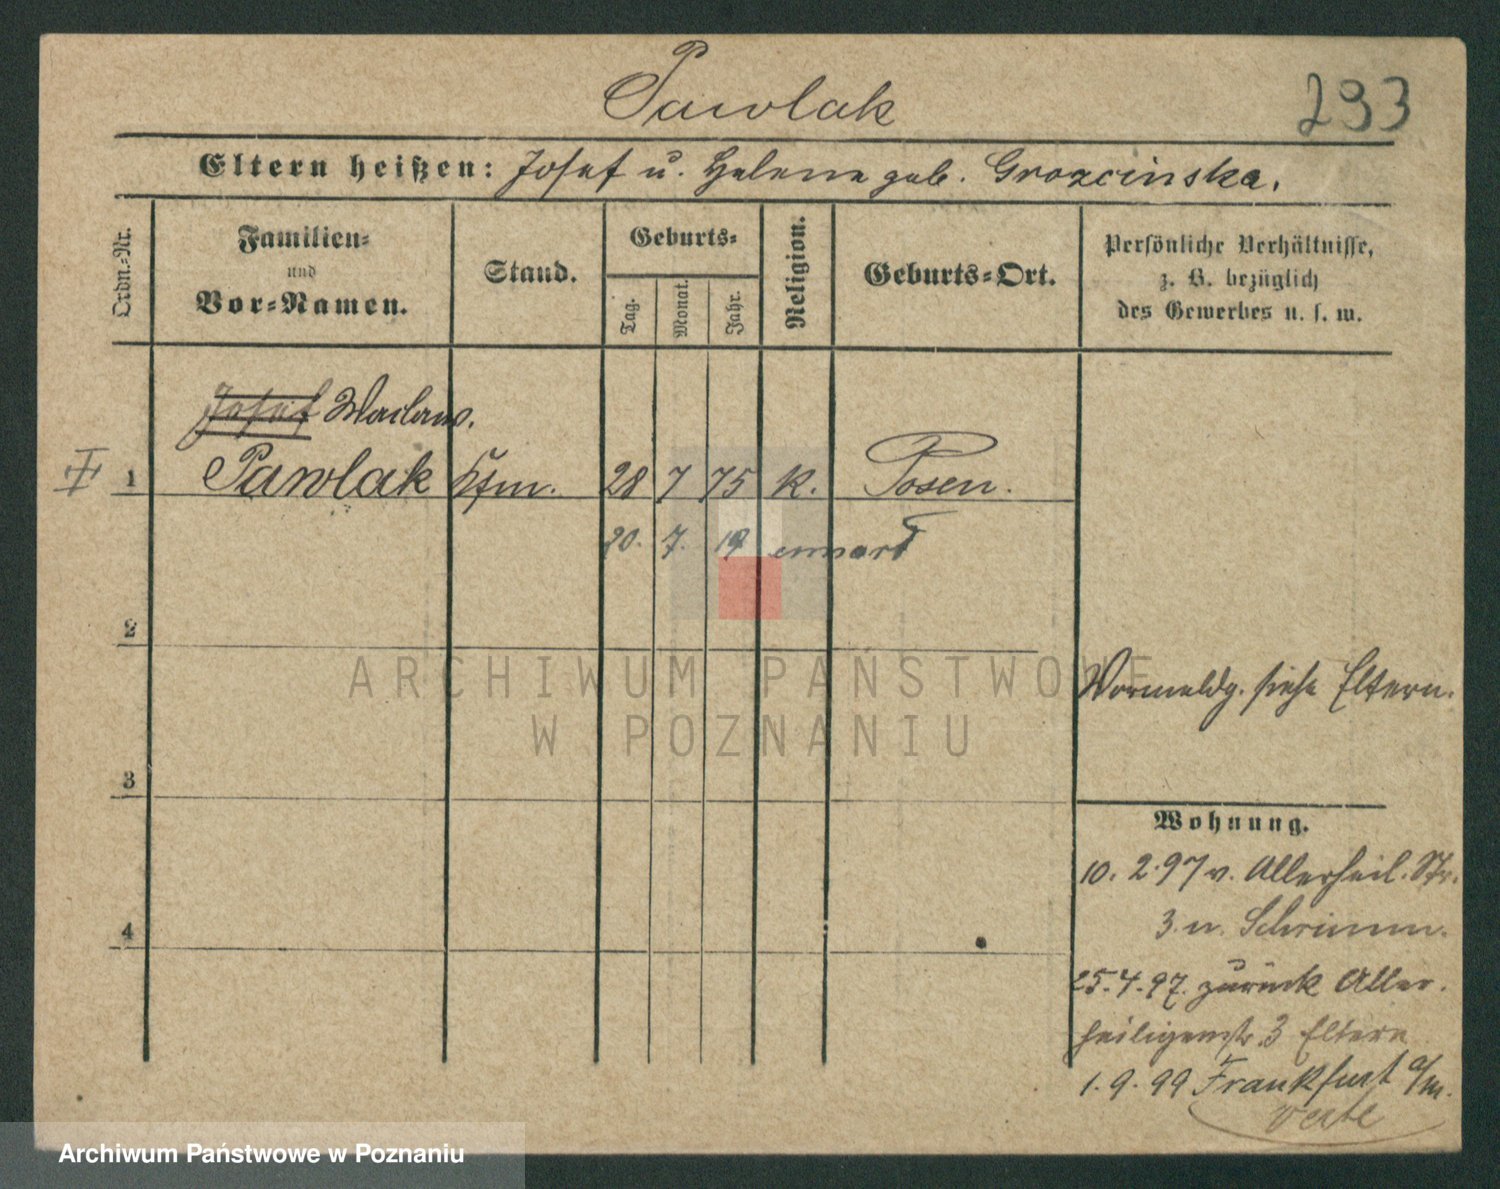 Pawlak
293
Eltern heißen: Josef u. Helene geb. Grozcinska.
Ordn.-Nr.
Familien-
und
Vor-Namen.
Stand.
Geburts-
Tag.
Monat.
Jahr.
Religion.
Geburts-Ort.
Persönliche Verhältnisse,
z. B. bezüglich
des Gewerbes u. s. w.
Josef Waclaw.
I 1 Pawlak Kfm. 28 7 75 K. Posen.
20. 7. 19
2
ARCHIWUM PAŃSTWOWE
W POZNANIU
Vormeldg. siehe Eltern.
3
Wohnung.
10. 2. 97 v. Allerheil. Str.
3 n. Schrimm.
4
25. 4. 97. zurück Aller-
heiligenstr. 3 Eltern
1. 9. 99 Frankfurt a/m.
verte
Archiwum Państwowe w Poznaniu